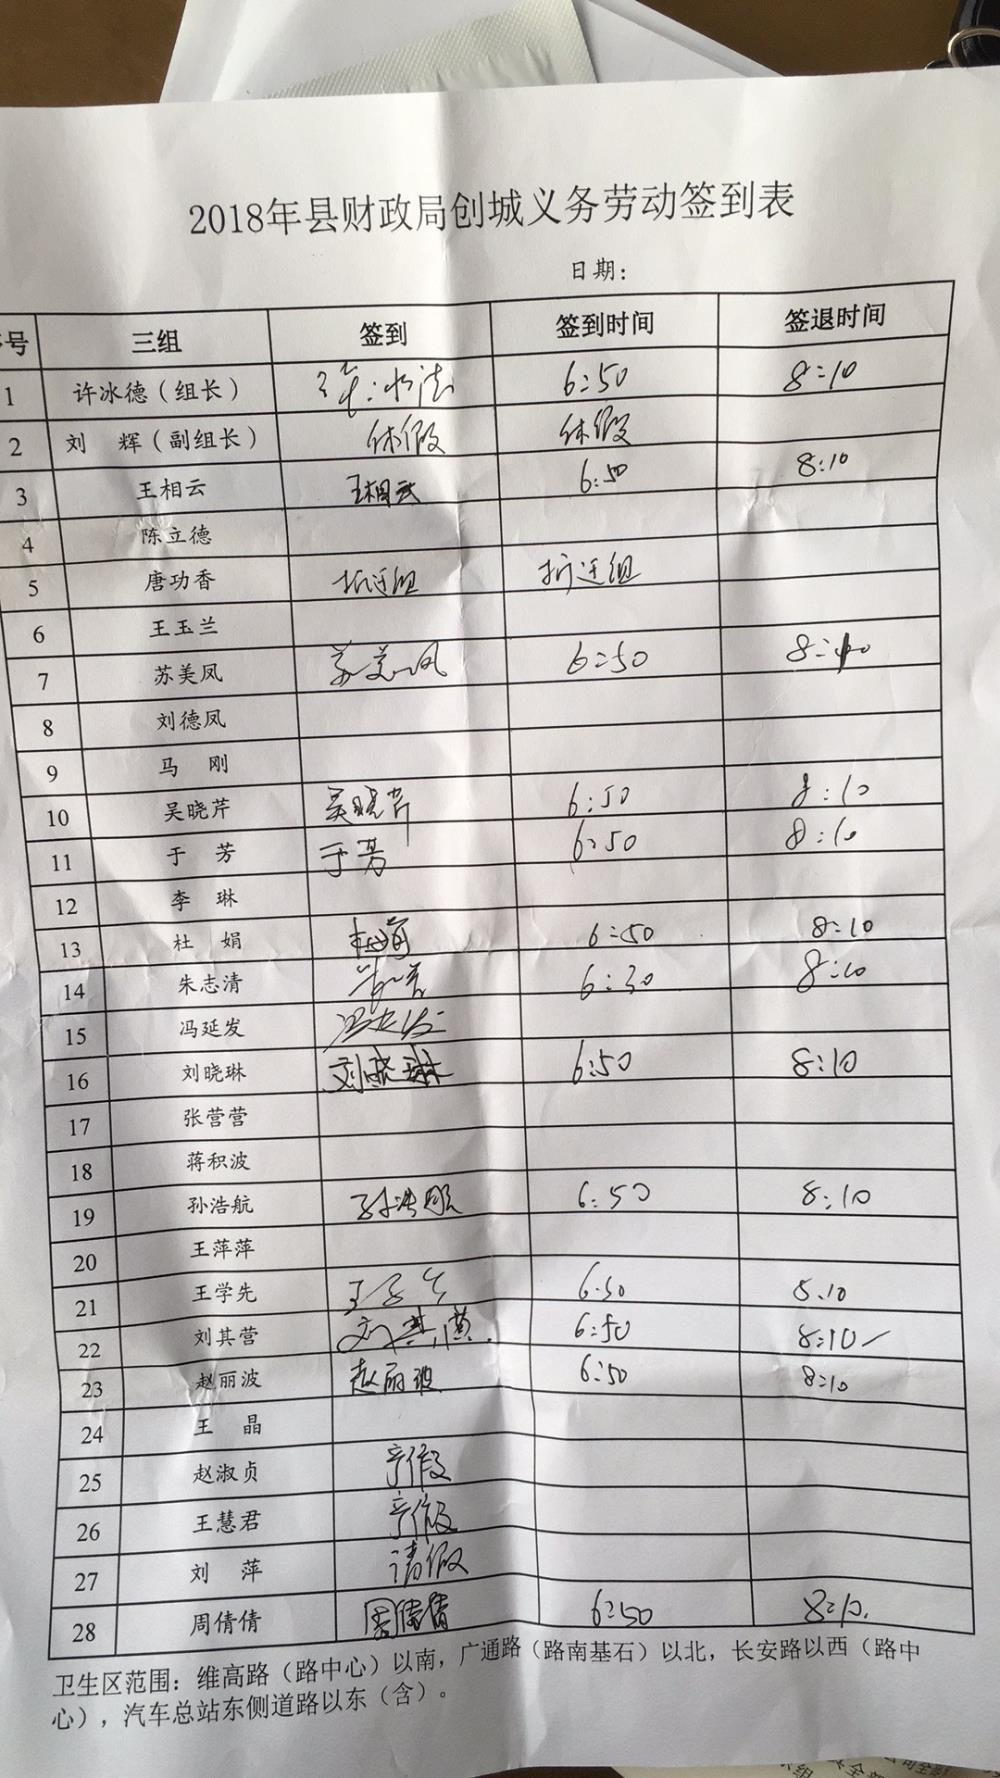 2018年县财政局创城义务劳动签到表
日期：
序号 三组 签到 签到时间 签退时间
1 许冰德（组长） 6:50 8:10
2 刘 辉（副组长） 休假 休假
3 王相云 王相云 6:50 8:10
4 陈立德
5 唐功香 拆迁组 拆迁组
6 王玉兰
7 苏美凤 苏美凤 6:50 8:10
8 刘德凤
9 马 刚
10 吴晓芹 吴晓芹 6:50 8:10
11 于 芳 于芳 6:50 8:10
12 李 琳
13 杜 娟 杜娟 6:50 8:10
14 朱志清 6:30 8:10
15 冯延发 冯延发
16 刘晓琳 刘晓琳 6:50 8:10
17 张营营
18 蒋积波
19 孙浩航 孙浩航 6:50 8:10
20 王萍萍
21 王学先 王学先 6:50 8:10
22 刘其营 刘其营 6:50 8:10
23 赵丽波 赵丽波 6:50 8:10
24 王 晶
25 赵淑贞 产假
26 王慧君 产假
27 刘 萍 请假
28 周倩倩 周倩倩 6:50 8:10
卫生区范围：维高路（路中心）以南，广通路（路南基石）以北，长安路以西（路中
心），汽车总站东侧道路以东（含）。